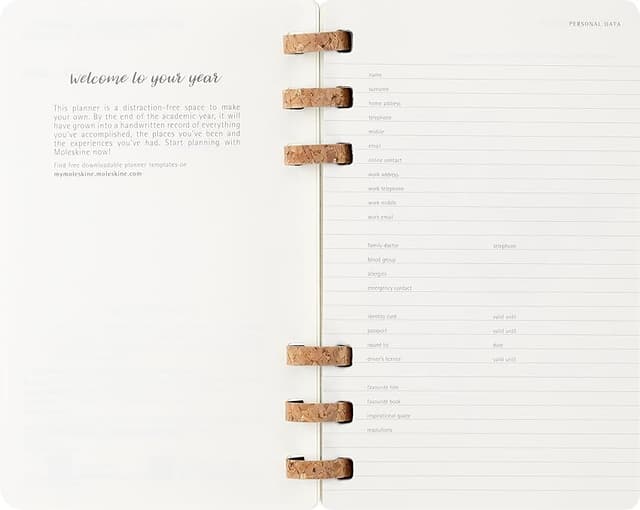 Welcome to your year
This planner is a distraction-free space to make
your own. By the end of the academic year, it will
have grown into a handwritten record of everything
you've accomplished, the places you've been and
the experiences you've had. Start planning with
Moleskine now!
Find free downloadable planner templates on
mymoleskine.moleskine.com
PERSONAL DATA
name
surname
home address
telephone
mobile
email
online contact
work address
work telephone
work mobile
work email
family doctor telephone
blood group
allergies
emergency contact
identity card valid until
passport valid until
issued by date
driver's licence valid until
favourite film
favourite book
inspirational quote
resolutions